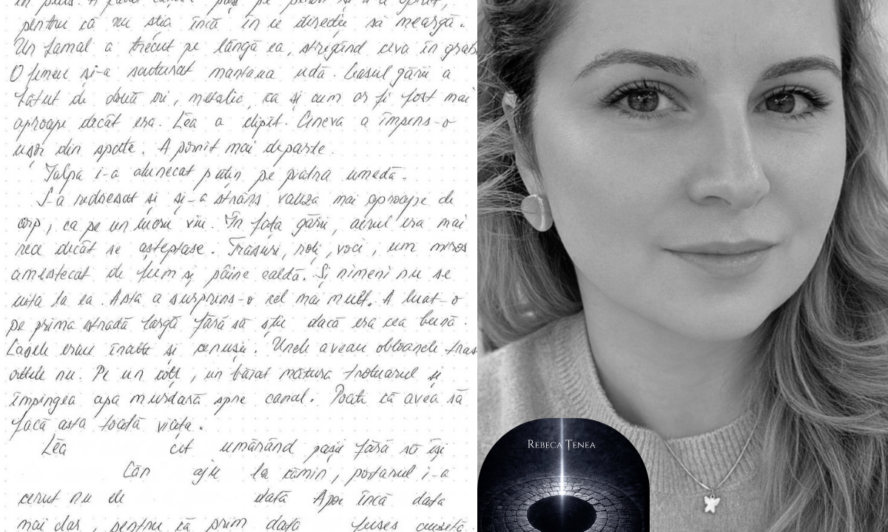 pentru că nu știa încă în ce direcție să meargă.
Un hamal a trecut pe lângă ea, strigând ceva în grabă
O femeie și-a scuturat mantaua udă. Ceasul gării a
bătut de două ori, metalic, ca și cum ar fi fost mai
aproape decât era. Lea a clipit. Cineva a împins-o
ușor din spate. A pornit mai departe.
Talpa i-a alunecat puțin pe piatra umedă.
S-a redresat și și-a strâns valiza mai aproape de
corp, ca pe un lucru viu. În fața gării, aerul era mai
rece decât se așteptase. Trăsuri, roți, voci, um miros
amestecat de fum și pâine caldă. Și nimeni nu se
uita la ea. Asta a surprins-o cel mai mult. A luat-o
pe prima stradă largă fără să știe dacă era cea bună.
Casele erau înalte și cenușii. Unele aveau obloanele tras
altele nu. Pe un colț, un băiat mătura trotuarul și
împingea apa murdară spre canal. Poate că avea să
facă asta toată viața.
Lea cit umărând pașii fără să își
Când la cămin, portarul i-a
cerut nu de data Apoi încă data
mai clar, pentru că prim data
REBECA TENEA